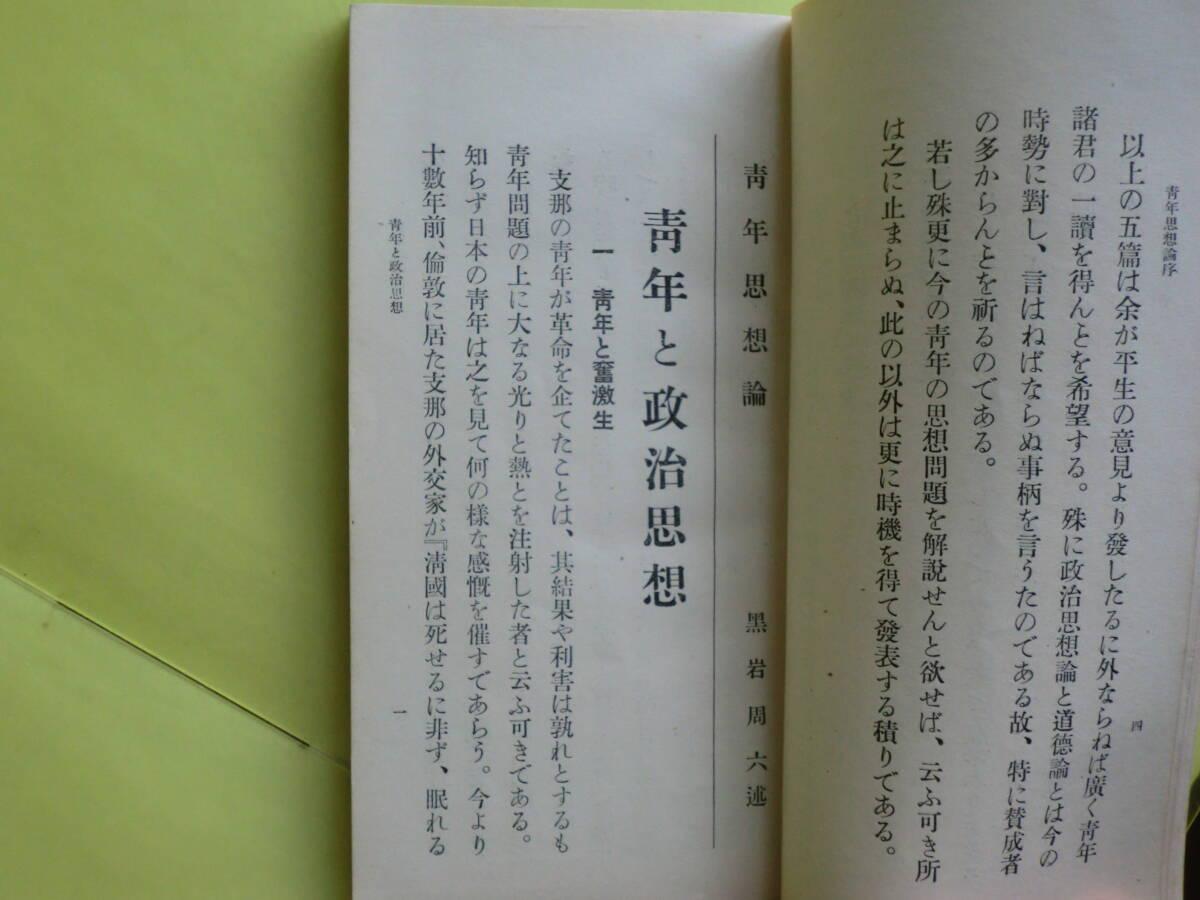 青年思想論序
四
以上の五篇は余が平生の意見より發したるに外ならねば廣く青年
諸君の一讀を得んとを希望する。殊に政治思想論と道德論とは今の
時勢に對し、言はねばならぬ事柄を言うたのである故、特に賛成者
の多からんとを祈るのである。
若し殊更に今の青年の思想問題を解説せんと欲せば、云ふ可き所
は之に止まらぬ、此の以外は更に時機を得て發表する積りである。
青年思想論
黑岩周六述
青年と政治思想
一 青年と奮激生
支那の青年が革命を企てたことは、其結果や利害は孰れとするも
青年問題の上に大なる光りと熱とを注射した者と云ふ可きである。
知らず日本の青年は之を見て何の樣な感慨を催すであらう。今より
十數年前、倫敦に居た支那の外交家が『淸國は死せるに非ず、眠れる
青年と政治思想
一